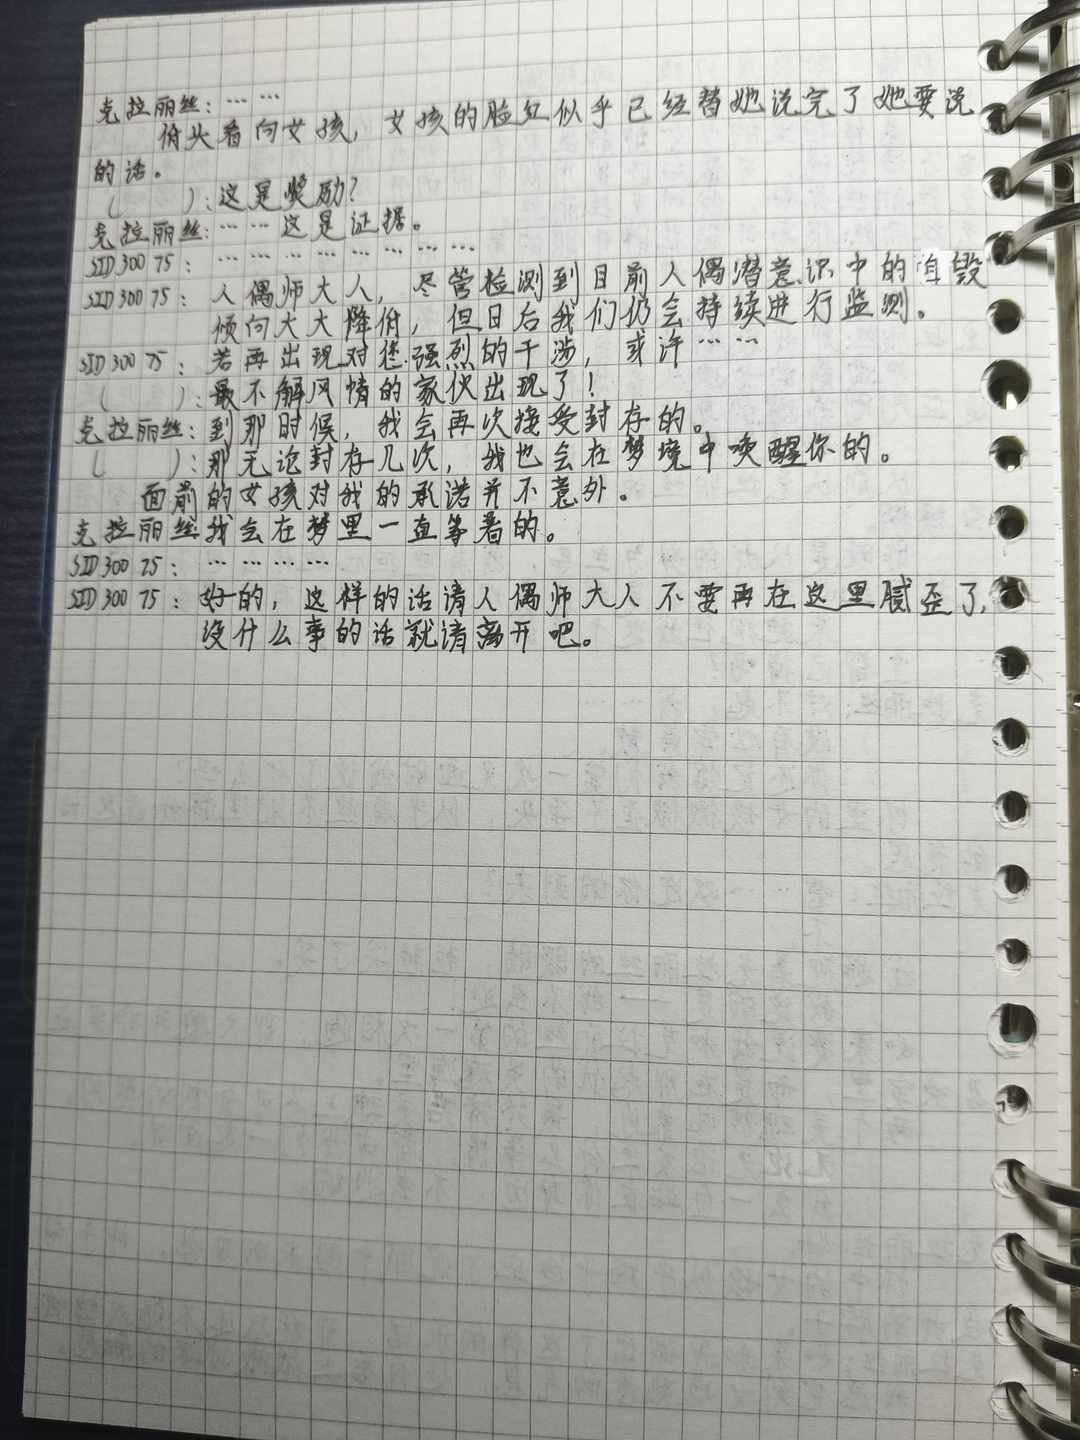 克拉丽丝：……
俯头看向女孩，女孩的脸红似乎已经替她说完了她要说
的话。
（　　）：这是奖励？
克拉丽丝：……这是证据。
SID300 75：……………………
SID300 75：人偶师大人，尽管检测到目前人偶潜意识中的自毁
倾向大大降低，但日后我们仍会持续进行监测。
SID300 75：若再出现对您强烈的干涉，或许……
（　　）：最不解风情的家伙出现了！
克拉丽丝：到那时候，我会再次接受封存的。
（　　）：那无论封存几次，我也会在梦境中唤醒你的。
面前的女孩对我的承诺并不意外。
克拉丽丝：我会在梦里一直等着的。
SID300 75：…………
SID300 75：好的，这样的话请人偶师大人不要再在这里腻歪了，
没什么事的话就请离开吧。